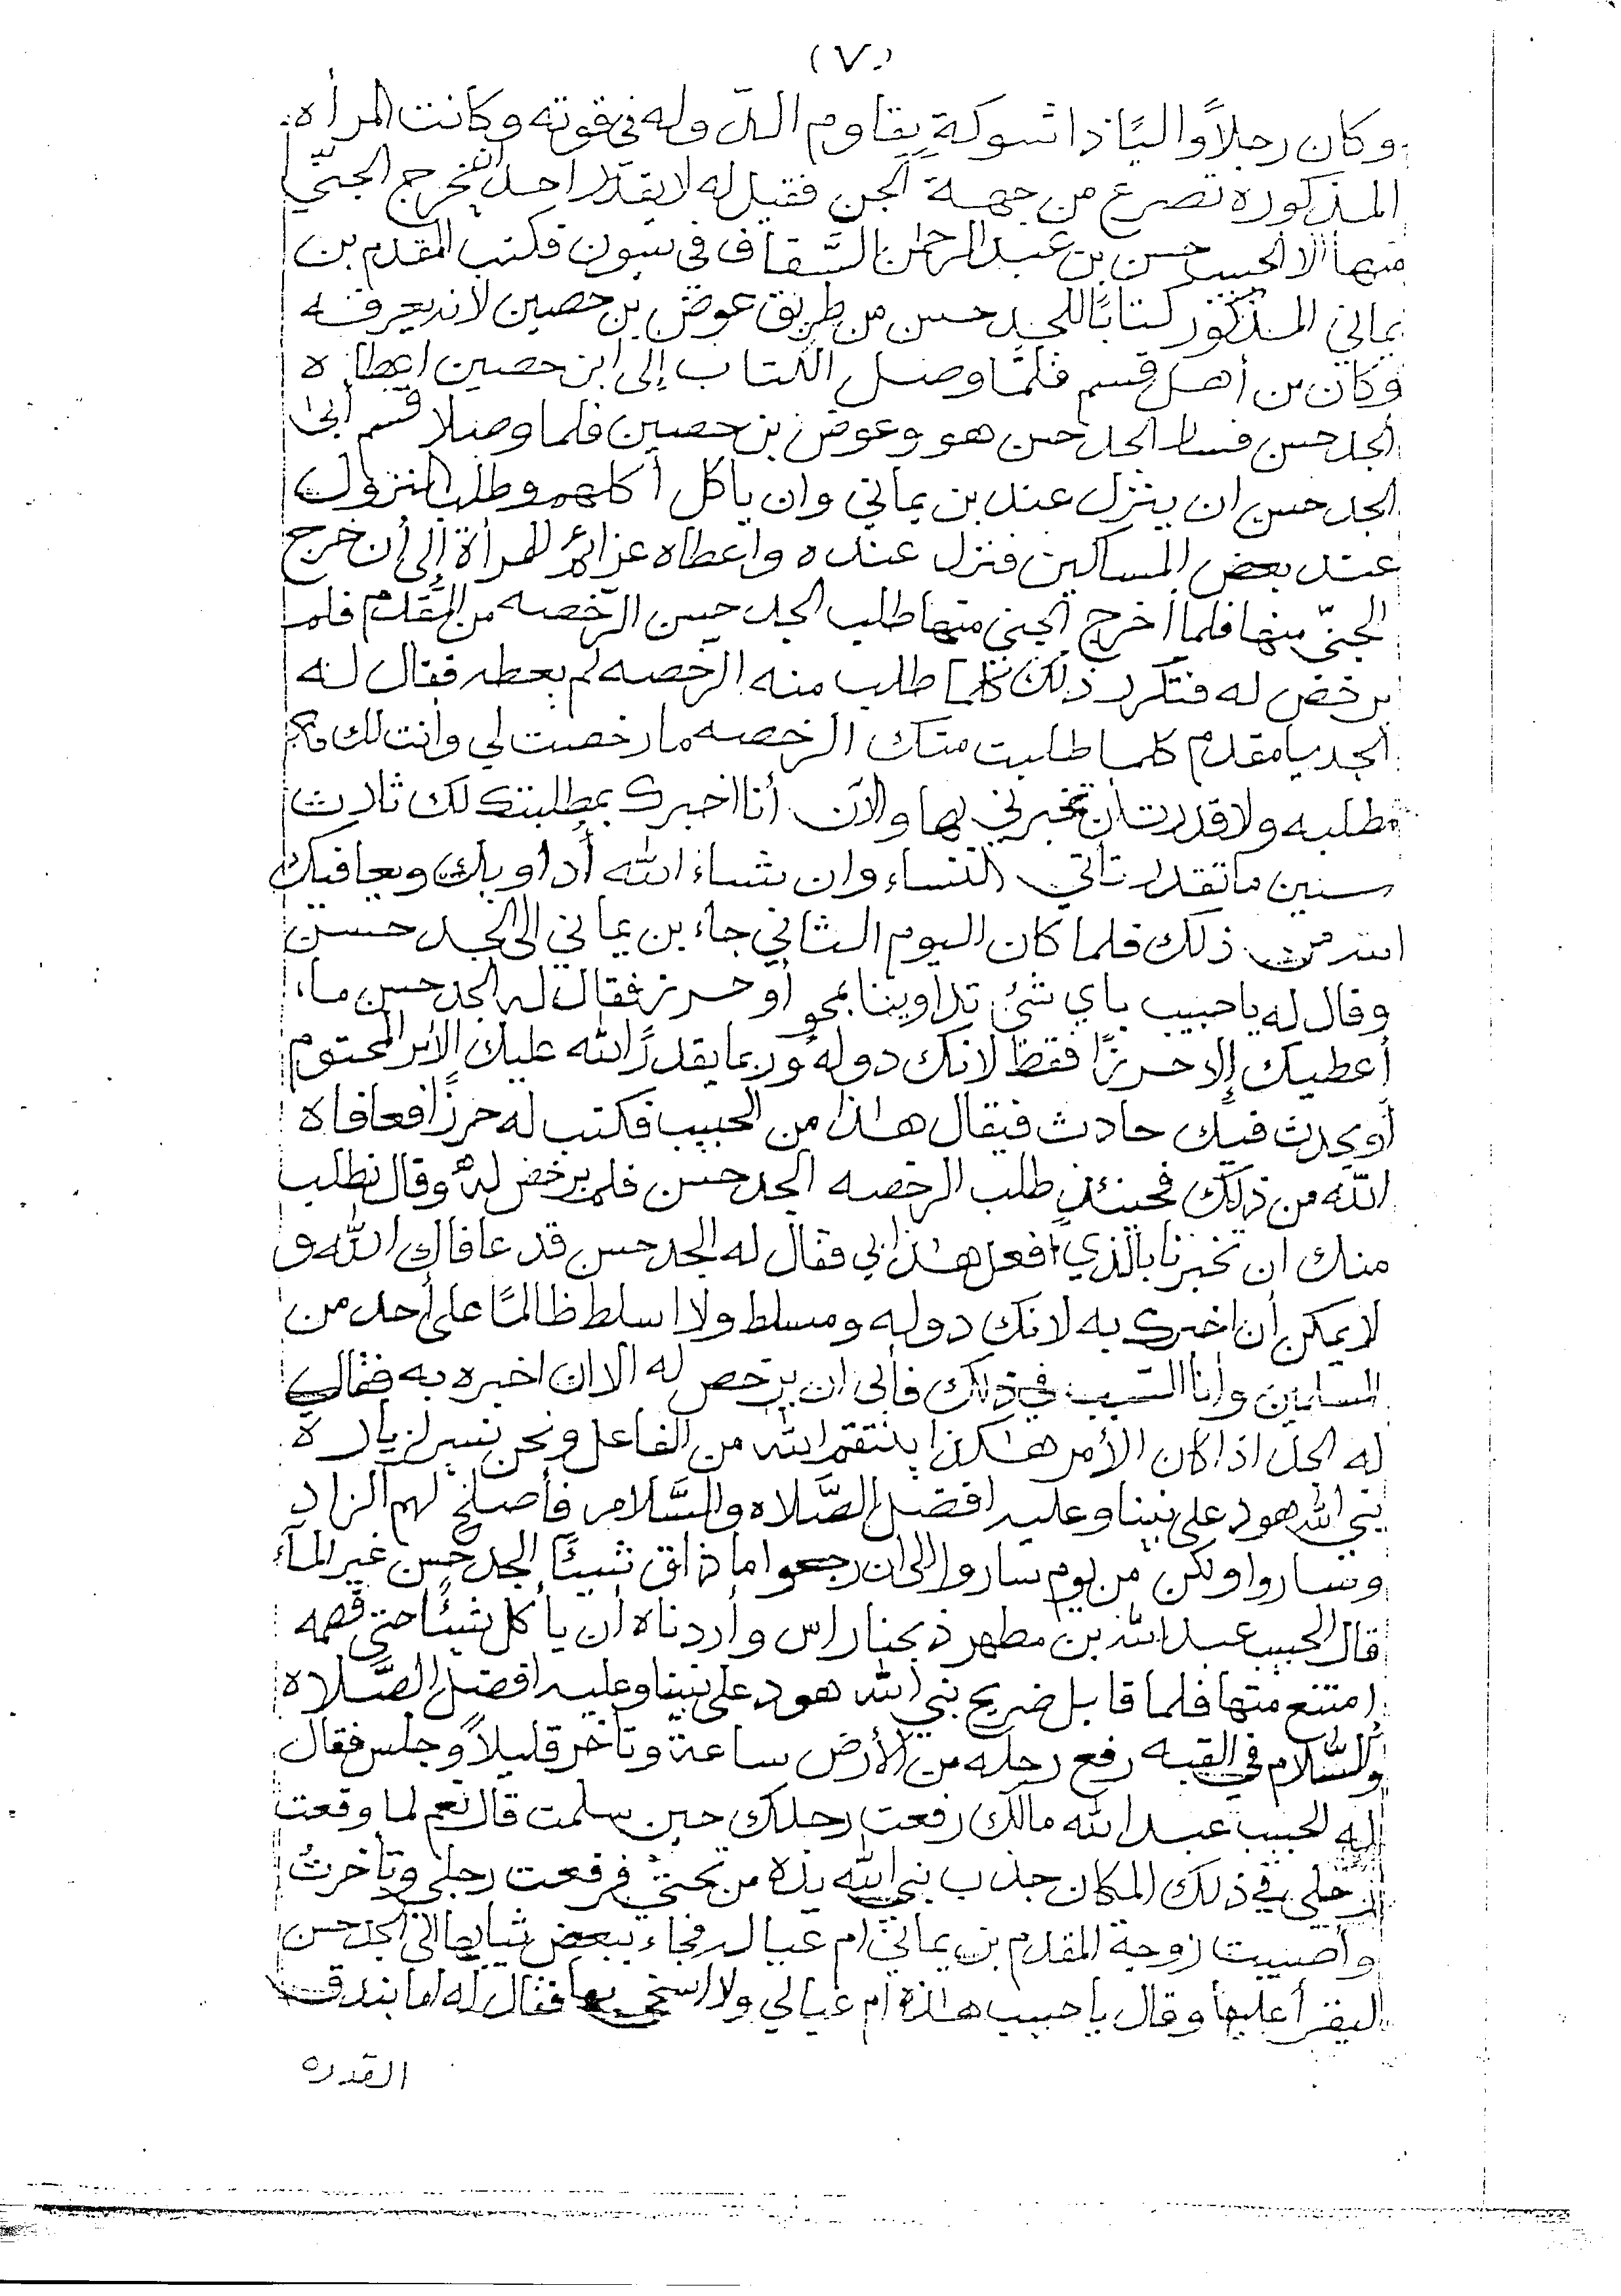 (٧٠)
وكان رجلاً واليًا ذا شوكةٍ يقاوم الدّوله في قوته وكانت المرأه
المذكوره تصرع من جهة الجن فقيل له لا يقدر احد يخرج الجنيّ
منها الا الحبيب حسن بن عبدالرحمن السَّقاف في سيون فكتب المقدم بن
يماني المذكور كتابًا للجد حسن من طريق عوض بن حصين لانه يعرفه
وكان من أهل قسم فلمَّا وصل الكتاب إلى ابن حصين اعطاه
الجد حسن فسار الجد حسن هو وعوض بن حصين فلما وصلا قسم أبى
الجد حسن ان ينزل عند بن يماني وان ياكل أكلهم وطلب النزول
عند بعض المساكين فنزل عنده واعطاه عزائم للمرأة إلى أن خرج
الجنيّ منها فلما أخرج الجني منها طلب الجد حسن الرخصه من المقَدم فلم
يرخض له فتكرر ذلك كلما طلب منه الرخصه لم يعطه فقال له
الجد يا مقدم كلما طلبت منك الرخصه ما رخصت لي وانت لك
مطلبه ولا قدرت أن تخبرني بها والآن أنا اخبرك بمطلبتك لك ثلاث
سنين ما تقدر تأتي النساء وان شاء الله أداويك ويعافيك
الله من ذلك فلما كان اليوم الثاني جاء بن يماني الى الجد حسن
وقال له يا حبيب باي شئ تداوينا بمحو أو حرز فقال له الجد حسن ما
أعطيك إلا حرزًا فقط لانك دوله وربما يقدرُ الله عليك الأمر المحتوم
أو يحدث فيك حادث فيقال هذا من الحبيب فكتب له حرزًا فعافاه
الله من ذلك فحينئذٍ طلب الرخصه الجد حسن فلم يرخض له وقال نطلب
منك ان تخبرنا بالذي افعل هذا بي فقال له الجد حسن قد عافاك الله و
لا يمكن أن اخبرك به لانك دوله ومسلط ولا اسلط ظالمًا على أحد من
المسلمين وأنا السبب في ذلك فأبى ان يرخص له الا ان اخبره به فقال
له الجد اذا كان الأمر هكذا ينتقم الله من الفاعل ونحن نسير لزيارة
نبي الله هود على نبينا وعليه افضل الصَّلاه والسَّلام فأصلح لهم الزاد
وساروا ولكن من يوم ساروا الى ان رجعوا ما ذاق شيئًا الجد حسن غير المآء
قال الحبيب عبد الله بن مطهر ذبحنا راس وأردناه أن يأكل شيئًا حتى قصمه
امتنع منها فلما قابل ضريح نبي الله هود على نبينا وعليه افضل الصَّلاه
والسَّلام في القبه رفع رجله من الأرض ساعة وتأخر قليلاً وجلس فقال
له الحبيب عبد الله مالك رفعت رجلك حين سلمت قال نعم لما وقعت
رجلي في ذلك المكان جذب نبي الله يده من تحتي فرفعت رجلي وتأخرتُ
وأصيبت زوجة المقدم بن يماني ام عياله فجاء ببعض ثيابها الى الجد حسن
ليقرأ عليها وقال يا حبيب هذه ام عيالي ولا اسخى بها فقال له اما بندق
القدره